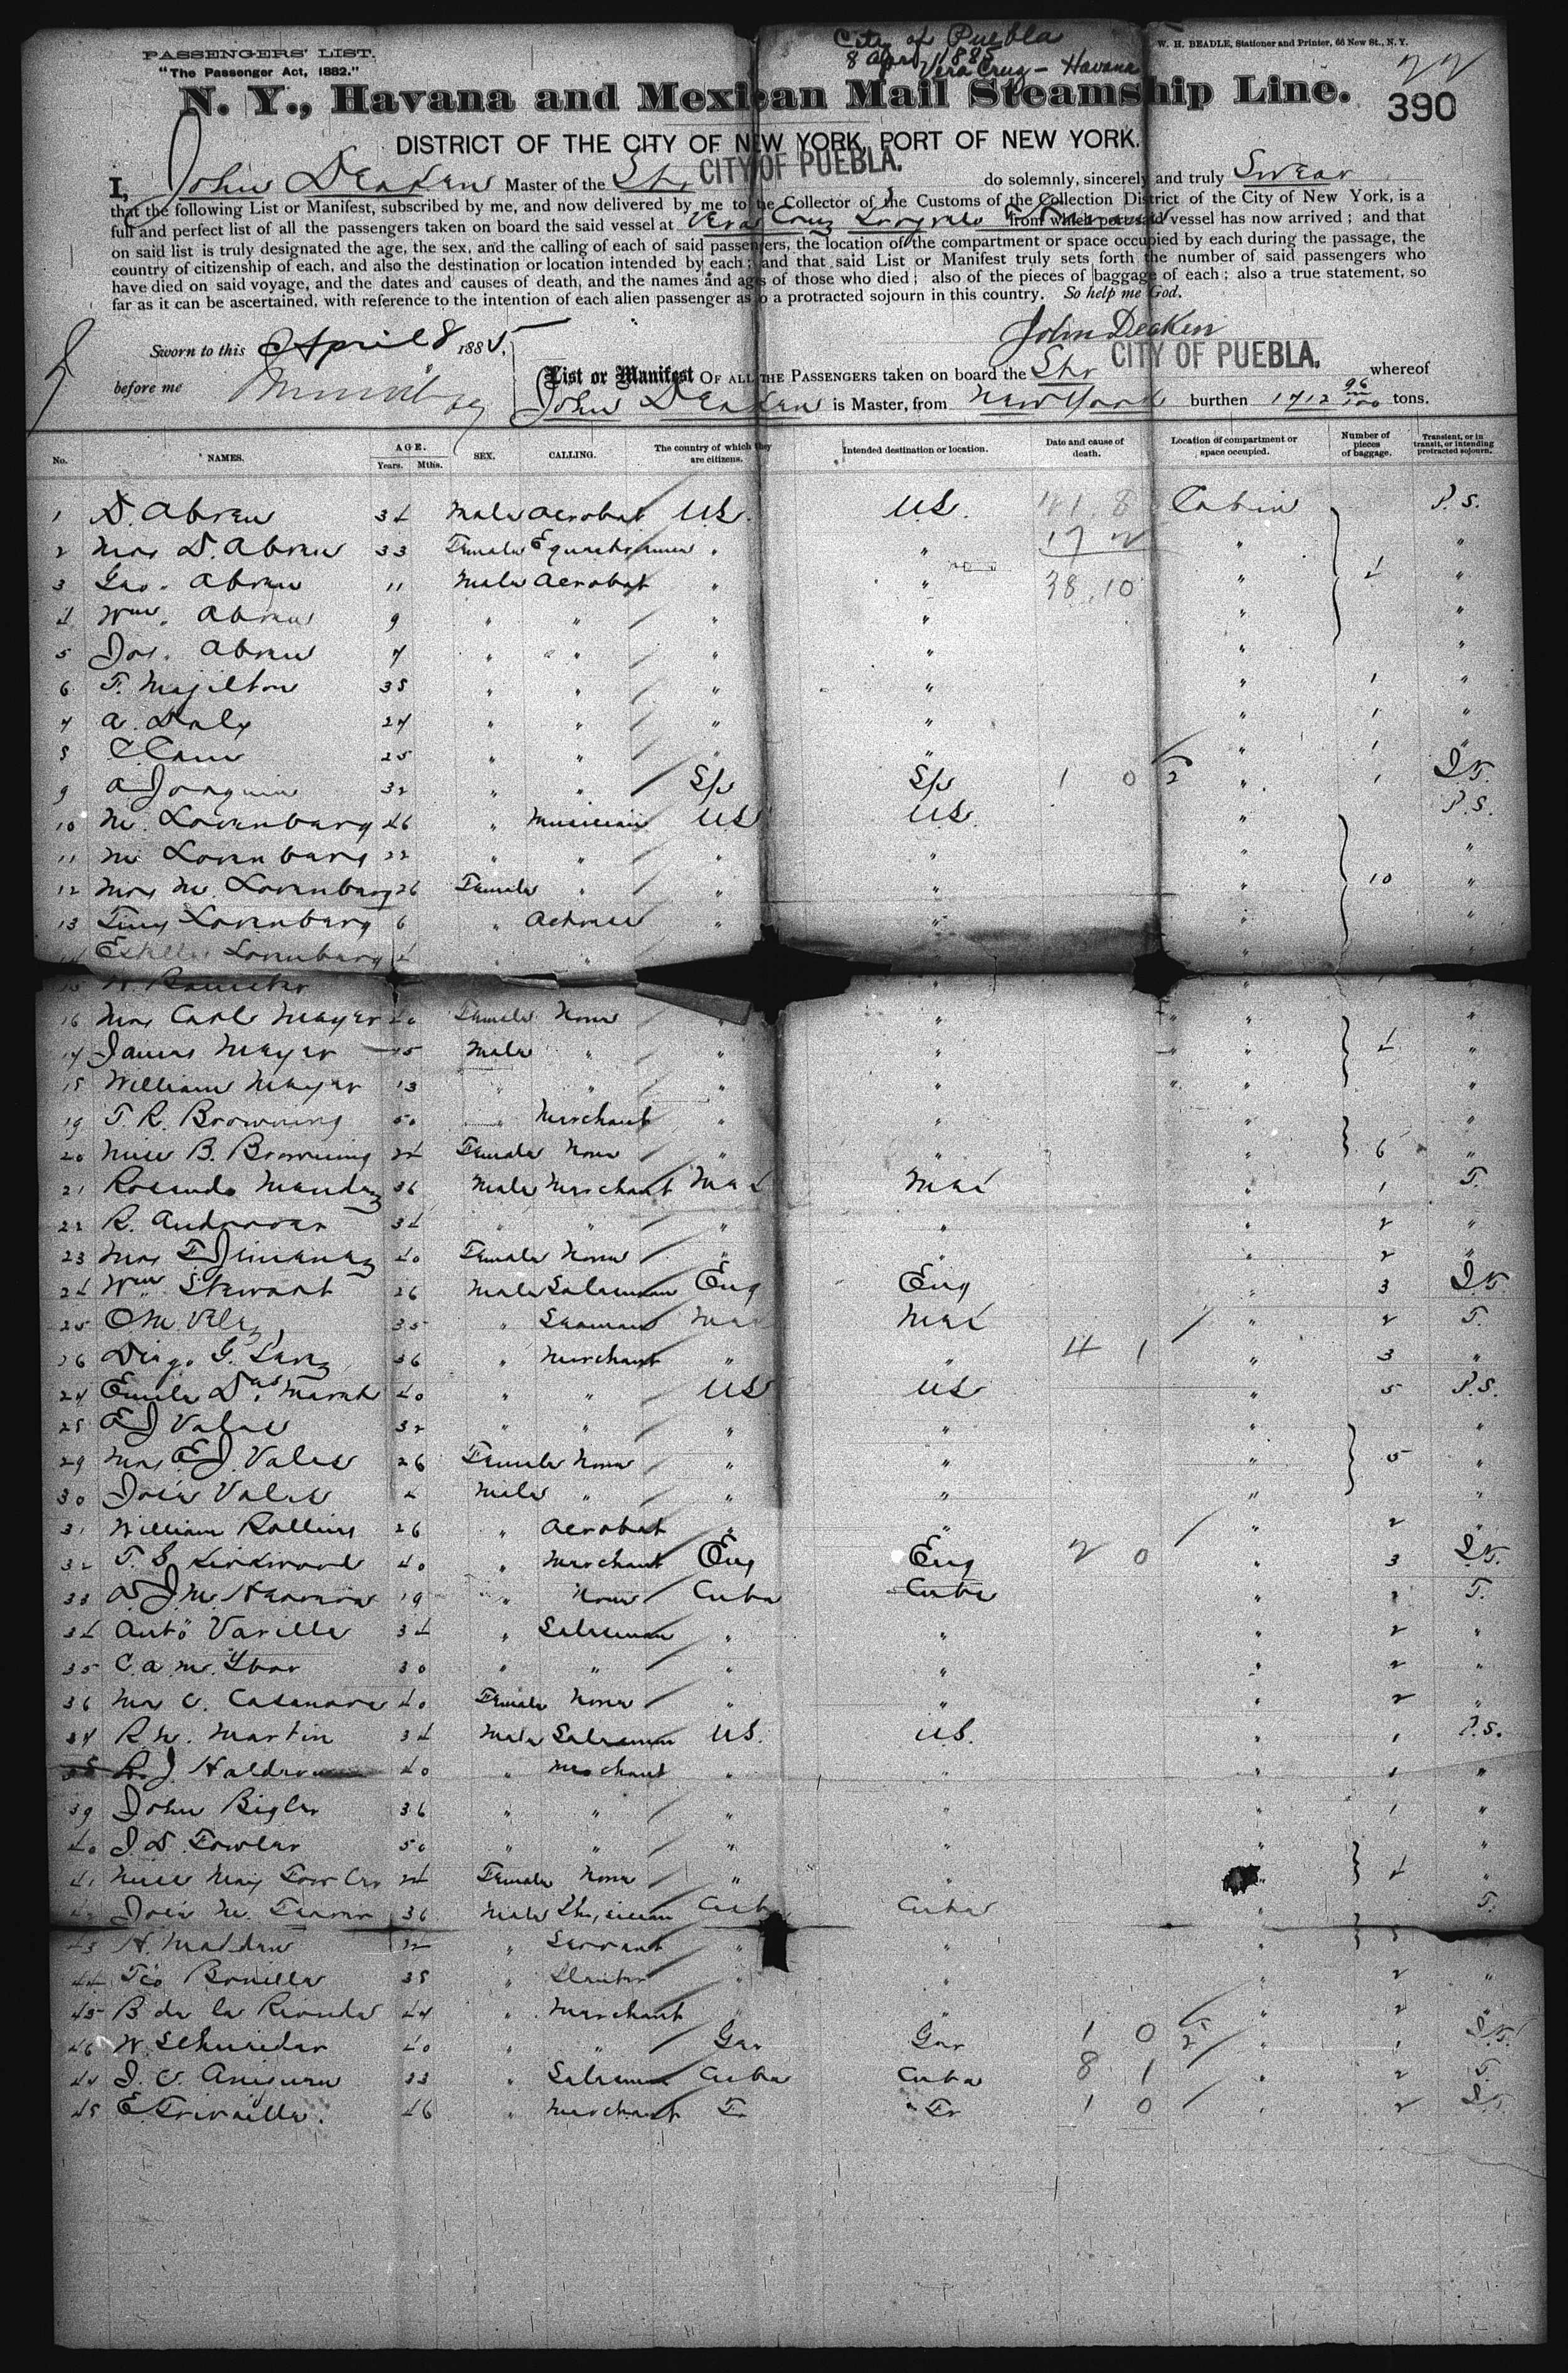 PASSENGERS' LIST.
"The Passenger Act, 1882."
City of Puebla
8 April 1885
Vera Cruz - Havana
W. H. BEADLE, Stationer and Printer, 66 New St., N. Y.
N. Y., Havana and Mexican Mail Steamship Line.
390
DISTRICT OF THE CITY OF NEW YORK, PORT OF NEW YORK.
I, John Deaken Master of the Str CITY OF PUEBLA. do solemnly, sincerely and truly Swear
that the following List or Manifest, subscribed by me, and now delivered by me to the Collector of the Customs of the Collection District of the City of New York, is a
full and perfect list of all the passengers taken on board the said vessel at Vera Cruz from which port said vessel has now arrived; and that
on said list is truly designated the age, the sex, and the calling of each of said passengers, the location of the compartment or space occupied by each during the passage, the
country of citizenship of each, and also the destination or location intended by each; and that said List or Manifest truly sets forth the number of said passengers who
have died on said voyage, and the dates and causes of death, and the names and ages of those who died; also of the pieces of baggage of each; also a true statement, so
far as it can be ascertained, with reference to the intention of each alien passenger as to a protracted sojourn in this country. So help me God.
John Deaken
Sworn to this April 8 1885,
before me
List or Manifest OF ALL THE PASSENGERS taken on board the Str CITY OF PUEBLA. whereof
John Deaken is Master, from New York burthen 1712 96/100 tons.
No. NAMES. AGE. Years. Mths. SEX. CALLING. The country of which they are citizens. Intended destination or location. Date and cause of death. Location of compartment or space occupied. Number of pieces of baggage. Transient, or in transit, or intending protracted sojourn.
1 D. Abreu 34 Male Acrobat U.S. U.S. Cabin P.S.
2 Mrs D. Abreu 33 Female " " " "
3 Geo. Abreu 11 Male Acrobat " " " 4 "
4 Wm. Abreu 9 " " " " " "
5 Jos. Abreu 7 " " " " " "
6 F. Majilton 38 " " " " " 1 "
7 A. Daly 27 " " " " " 1 "
8 25 " " " " " 1 "
9 A Joaquin 32 " " Sp Sp 1 0 " 1
10 M. Lovenburg 46 " Musician US US. " P.S.
11 M. Lovenburg 22 " " " " " "
12 Mrs M. Lovenburg 26 Female " " " " 10 "
13 Tiny Lovenburg 6 " Actress " " " "
14 Estelle Lovenburg 4 " "
15
16 Mrs Carl Mayer 40 Female None " " " "
17 James Mayer 15 Male " " " " 4 "
18 William Mayer 13 " " " " "
19 T. R. Browning 50 " Merchant " " " "
20 Miss B. Browning 24 Female None " " " 6 "
21 Rosendo Mendez 36 Male Merchant Mex Mex " 1 T.
22 R. 34 " " " " " 2 "
23 Mrs F Jimenez 40 Female None " " " 2 "
24 Wm Stewart 26 Male Salesman Eng Eng " 3
25 O. M. Velez 35 " Seaman Mex Mex " 2 T.
26 Diego G. 36 " Merchant " " 4 1 " 3 "
27 Emile 40 " " US US " 5 P.S.
28 E J Vales 32 " " " " " "
29 Mrs E J. Vales 26 Female None " " " 5 "
30 José Vales 2 Male " " " " "
31 William Rollins 26 " Acrobat " " " 2 "
32 T. S. Kirkwood 40 " Merchant Eng Eng 2 0 " 3
33 19 " None Cuba Cuba " T.
34 Anto Varilla 34 " Salesman " " " 2 "
35 C. a. m. Ybor 30 " " " " " 2 "
36 C. Casanova 40 Female None " " " 2 "
37 R. W. Martin 34 Male Salesman U.S. U.S. " 1 P.S.
38 40 " Merchant " " " 1 "
39 John Bigler 36 " " " " " 1 "
40 J. D. Fowler 50 " " " " " "
41 Miss May Fowler 24 Female None " " " 4 "
42 José M. 36 Male Physician Cuba Cuba " T.
43 22 " Servant " " "
44 Bonilla 38 " Planter " " " 2 "
45 B de la Rionda 27 " Merchant " " 2 "
46 W. Schneider 40 " " Ger Ger 1 0 " 1
47 J. C. 33 " Salesman Cuba Cuba 8 1 " 2 T.
48 46 " Merchant Fr Fr 1 0 " 2